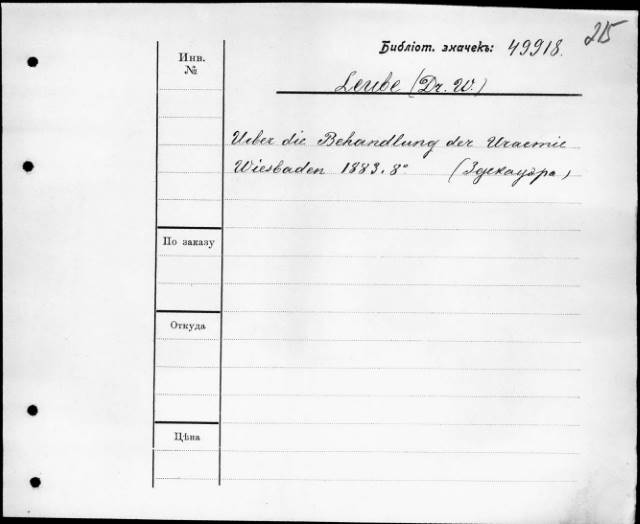 215
Библіот. значекъ: 49918.
Инв.
№
Leube (Dr. W.)
Ueber die Behandlung der Uraemie
Wiesbaden 1883. 8° (Здекауэра)
По заказу
Откуда
Цѣна